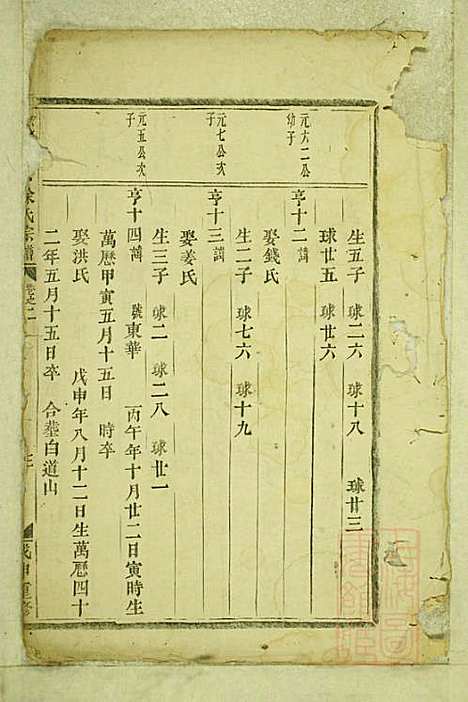 生五子 球二六 球十八 球廿三
球廿五 球廿六
元六二公
幼子
亨十二 諱
娶錢氏
生二子 球七六 球十九
元七公次
子
亨十三 諱
娶姜氏
生三子 球二 球二八 球廿一
元五公次
子
亨十四 諱 號東華 丙午年十月廿二日寅時生
萬曆甲寅五月十五日 時卒
娶洪氏 戊申年八月十二日生萬曆四十
二年五月十五日卒 合塟白道山
余氏宗譜
卷之二
戊申重修